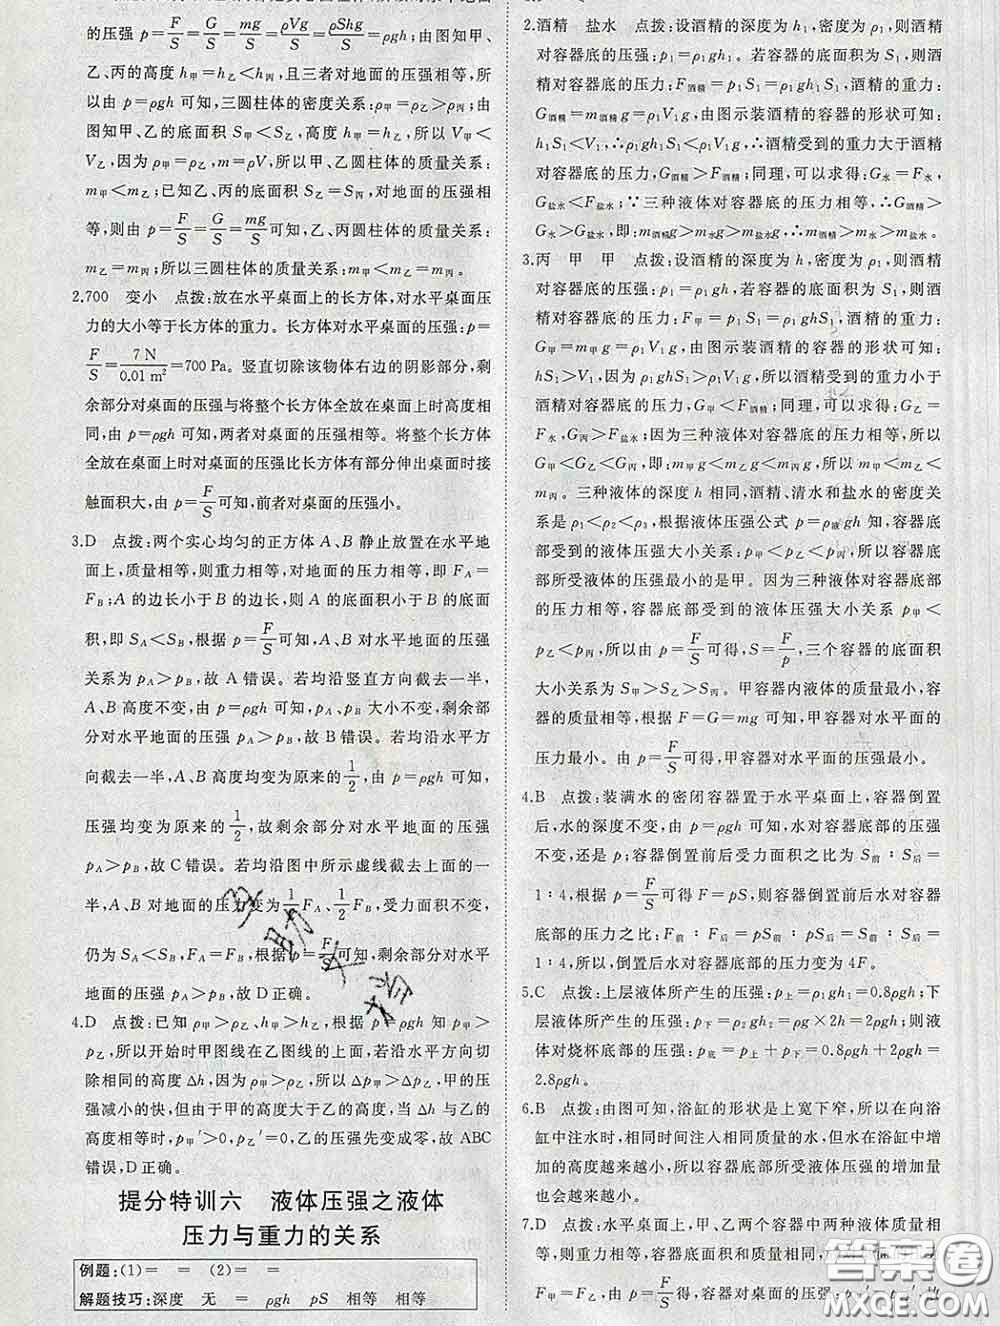 的压强 p=F/S=G/S=mg/S=ρVg/S=ρShg/S=ρgh;由图知甲、
乙、丙的高度 h甲<h乙<h丙,且三者对地面的压强相等,所
以由 p=ρgh 可知,三圆柱体的密度关系:ρ甲>ρ乙>ρ丙;由
图知甲、乙的底面积 S甲<S乙,高度 h甲<h乙,所以 V甲<
V乙,因为 ρ甲>ρ乙,m=ρV,所以甲、乙圆柱体的质量关系:
m甲<m乙;已知乙、丙的底面积 S乙=S丙,对地面的压强相
等,则由 p=F/S=G/S=mg/S可知,乙、丙圆柱体的质量关系:
m乙=m丙;所以三圆柱体的质量关系:m甲<m乙=m丙。
2.700 变小 点拨:放在水平桌面上的长方体,对水平桌面压
力的大小等于长方体的重力。长方体对水平桌面的压强:p=
F/S=7 N/0.01 m²=700 Pa。竖直切除该物体右边的阴影部分,剩
余部分对桌面的压强与将整个长方体全放在桌面上时高度相
同,由 p=ρgh 可知,两者对桌面的压强相等。将整个长方体
全放在桌面上时对桌面的压强比长方体有部分伸出桌面时接
触面积大,由 p=F/S可知,前者对桌面的压强小。
3.D 点拨:两个实心均匀的正方体 A、B 静止放置在水平地
面上,质量相等,则重力相等,对地面的压力相等,即 FA=
FB;A 的边长小于 B 的边长,则 A 的底面积小于 B 的底面
积,即 SA<SB,根据 p=F/S可知,A、B 对水平地面的压强
关系为 pA>pB,故 A 错误。若均沿竖直方向截去一半,
A、B 高度不变,由 p=ρgh 可知,pA、pB 大小不变,剩余部
分对水平地面的压强 pA>pB,故 B 错误。若均沿水平方
向截去一半,A、B 高度均变为原来的1/2,由 p=ρgh 可知,
压强均变为原来的1/2,故剩余部分对水平地面的压强
pA>pB,故 C 错误。若均沿图中所示虚线截去上面的一
半,A、B 对地面的压力变为1/2FA、1/2FB,受力面积不变,
仍为 SA<SB,FA=FB,根据 p=F/S可知,剩余部分对水平
地面的压强 pA>pB,故 D 正确。
4.D 点拨:已知 ρ甲>ρ乙、h甲>h乙,根据 p=ρgh 知 p甲>
p乙,所以开始时甲图线在乙图线的上面,若沿水平方向切
除相同的高度 Δh,因为 ρ甲>ρ乙,所以 Δp甲>Δp乙,甲的压
强减小的快,但由于甲的高度大于乙的高度,当 Δh 与乙的
高度相等时,p甲′>0,p乙′=0,乙的压强先变成零,故 ABC
错误,D 正确。
提分特训六 液体压强之液体
压力与重力的关系
例题:(1)= = (2)= =
解题技巧:深度 无 = ρgh pS 相等 相等
2.酒精 盐水 点拨:设酒精的深度为 h1,密度为 ρ1,则酒精
对容器底的压强:p1=ρ1gh1。若容器的底面积为 S1,则酒
精对容器底的压力:F酒精=p1S1=ρ1gh1S1,酒精的重力:
G酒精=m酒精g=ρ1V1g,由图示装酒精的容器的形状可知:
h1S1<V1,∴ρ1gh1S1<ρ1V1g,∴酒精受到的重力大于酒精
对容器底的压力,G酒精>F酒精;同理,可以求得:G水=F水,
G盐水<F盐水;∵三种液体对容器底的压力相等,∴G酒精>
G水>G盐水,即:m酒精g>m水g>m盐水g,∴m酒精>m水>m盐水。
3.丙 甲 甲 点拨:设酒精的深度为 h,密度为 ρ1,则酒精对
容器底的压强:p1=ρ1gh。若容器的底面积为 S1,则酒精
对容器底的压力:F酒精=p1S1=ρ1ghS1,酒精的重力:
G甲=m甲g=ρ1V1g,由图示装酒精的容器的形状可知:
hS1>V1,因为 ρ1ghS1>ρ1V1g,所以酒精受到的重力小于
酒精对容器底的压力,G甲<F酒精;同理,可以求得:G乙=
F水,G丙>F盐水;因为三种液体对容器底的压力相等,所以
G甲<G乙<G丙,即:m甲g<m乙g<m丙g,所以 m甲<m乙<
m丙。三种液体的深度 h 相同,酒精、清水和盐水的密度关
系是 ρ1<ρ2<ρ3,根据液体压强公式 p=ρ液gh 知,容器底
部受到的液体压强大小关系:p甲<p乙<p丙,所以容器底
部所受液体的压强最小的是甲。因为三种液体对容器底部
的压力相等,容器底部受到的液体压强大小关系 p甲<
p乙<p丙,所以由 p=F/S可得,S=F/p,三个容器的底面积
大小关系为 S甲>S乙>S丙。甲容器内液体的质量最小,容
器的质量相等,根据 F=G=mg 可知,甲容器对水平面的
压力最小。由 p=F/S可得,甲容器对水平面的压强最小。
4.B 点拨:装满水的密闭容器置于水平桌面上,容器倒置
后,水的深度不变,由 p=ρgh 可知,水对容器底部的压强
不变,还是 p;容器倒置前后受力面积之比为 S前∶S后=
1∶4,根据 p=F/S可得 F=pS,则容器倒置前后水对容器
底部的压力之比:F前∶F后=pS前∶pS后=S前∶S后=
1∶4,所以,倒置后水对容器底部的压力变为 4F。
5.C 点拨:上层液体所产生的压强:p上=ρ1gh1=0.8ρgh;下
层液体所产生的压强:p下=ρ2gh2=ρg×2h=2ρgh;则液
体对烧杯底部的压强:p底=p上+p下=0.8ρgh+2ρgh=
2.8ρgh。
6.B 点拨:由图可知,浴缸的形状是上宽下窄,所以在向浴
缸中注水时,相同时间注入相同质量的水,但水在浴缸中增
加的高度越来越小,所以容器底部所受液体压强的增加量
也会越来越小。
7.D 点拨:水平桌面上,甲、乙两个容器中两种液体质量相
等,则重力相等,容器底面积和质量相同,所以由
F甲=F乙,由
答案卷
MXQE.COM